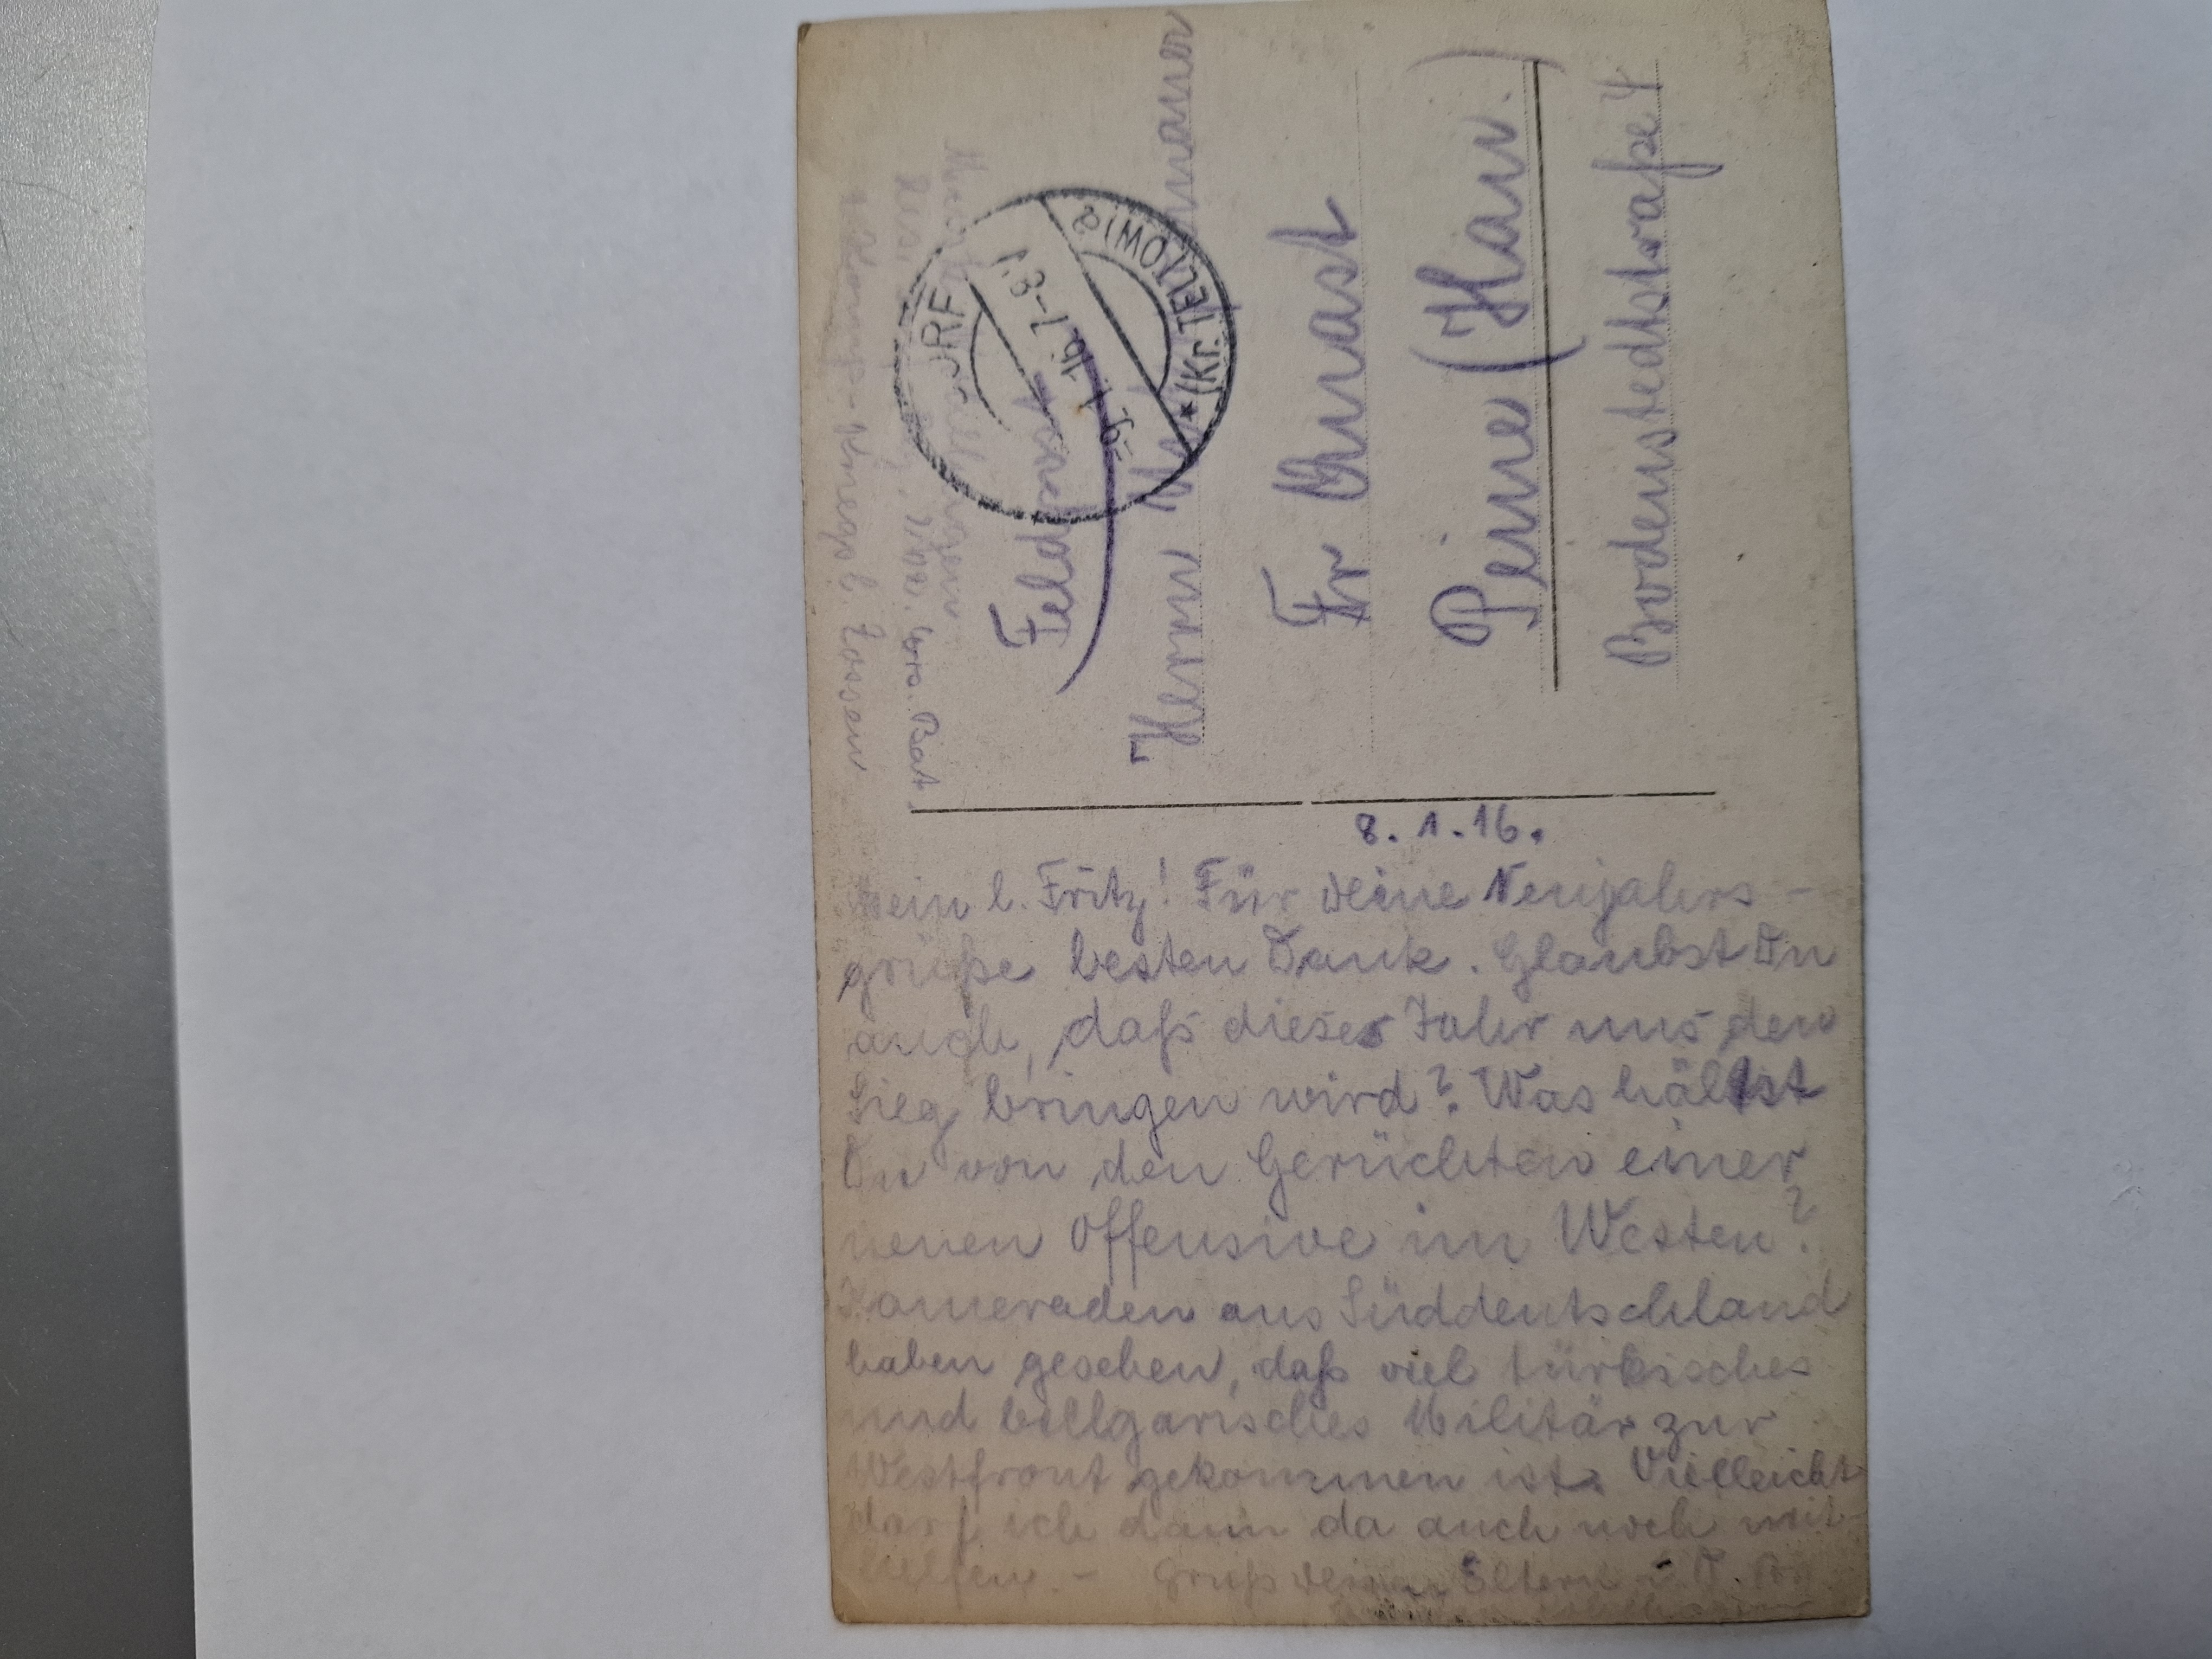 8.1.16.
Mein l. Fritz! Für Deine Neujahrs-
grüße besten Dank. Glaubst Du
auch, daß dieses Jahr uns den
Sieg bringen wird? Was hältst
Du von den Gerüchten einer
neuen Offensive im Westen?
Kameraden aus Süddeutschland
haben gesehen, daß viel türkisches
und bullgarisches Militär zur
Westfront gekommen ist. Vielleicht
darf ich dann da auch noch mit-
helfen. - Gruß Deinen Eltern
Ers. Bat
Zossen
Feldpost
Herrn
Fr Knast
Peine (Han.)
Bodenstedtstraße 4
DORF
-9.1.16.7-8V
*(Kr. TELTOW)a